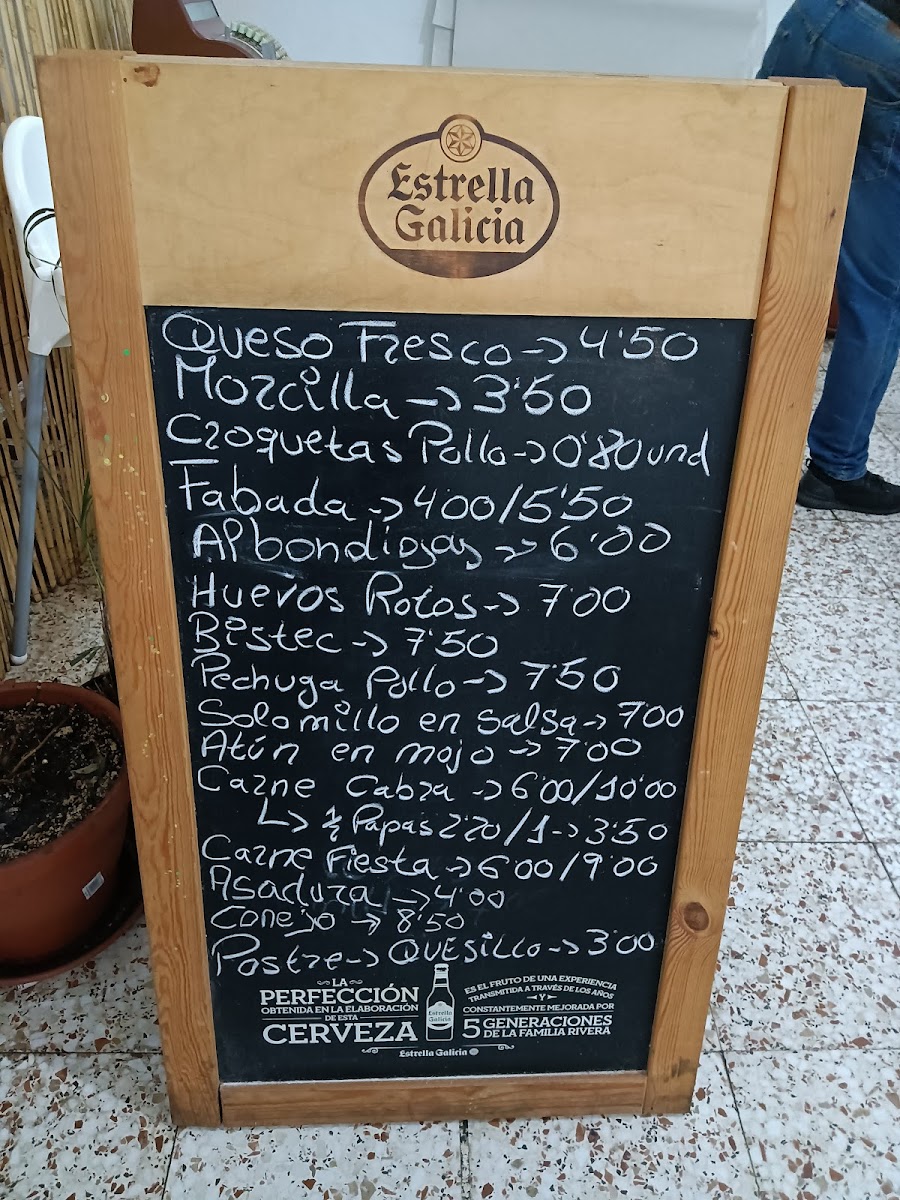 Estrella
Galicia
Queso Fresco → 4'50
Morcilla → 3'50
Croquetas Pollo → 0'80 und
Fabada → 4'00/5'50
Albondigas → 6'00
Huevos Rotos → 7'00
Bistec → 7'50
Pechuga Pollo → 7'50
Solomillo en salsa → 7'00
Atún en mojo → 7'00
Carne Cabra → 6'00/10'00
↳ ½ Papas 2'20/1 → 3'50
Carne Fiesta → 6'00/9'00
Asadura → 4'00
Conejo → 8'50
Postre → QUESILLO → 3'00
LA
PERFECCIÓN
OBTENIDA EN LA ELABORACIÓN
DE ESTA
CERVEZA
Estrella
Galicia
ES EL FRUTO DE UNA EXPERIENCIA
TRANSMITIDA A TRAVÉS DE LOS AÑOS
Y
CONSTANTEMENTE MEJORADA POR
5 GENERACIONES
DE LA FAMILIA RIVERA
Estrella Galicia